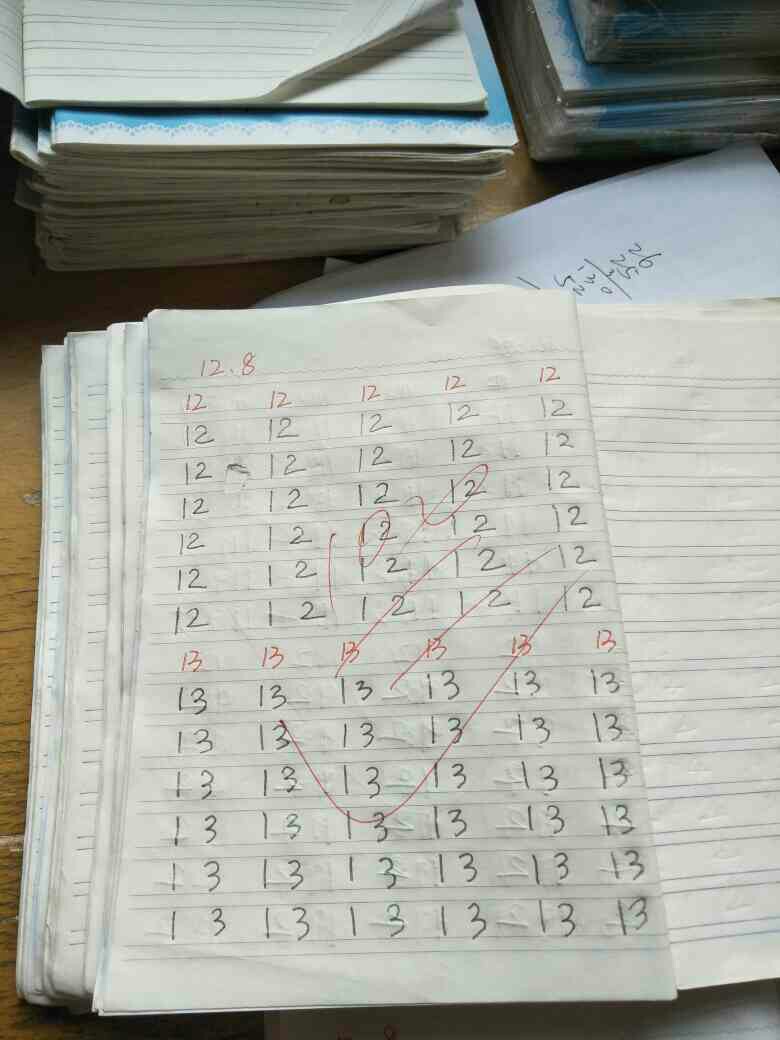 12.8
12 12 12 12 12
12 12 12 12 12
12 12 12 12 12
12 12 12 12 12
12 12 12 12 12
12 12 12 12 12
12 12 12 12 12
13 13 13 13 13 13
13 13 13 13 13 13
13 13 13 13 13 13
13 13 13 13 13 13
13 13 13 13 13 13
13 13 13 13 13 13
13 13 13 13 13 13